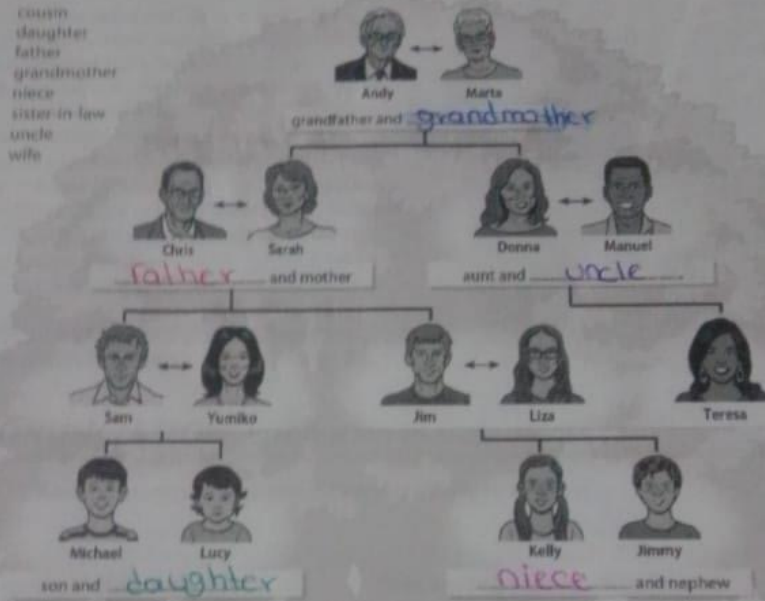 cousin
daughter
father
grandmother
niece
sister-in-law
uncle
wife
Andy Marta
grandfather and grandmother
Chris Sarah Donna Manuel
father and mother aunt and uncle
Sam Yumiko Jim Liza Teresa
Michael Lucy Kelly Jimmy
son and daughter niece and nephew